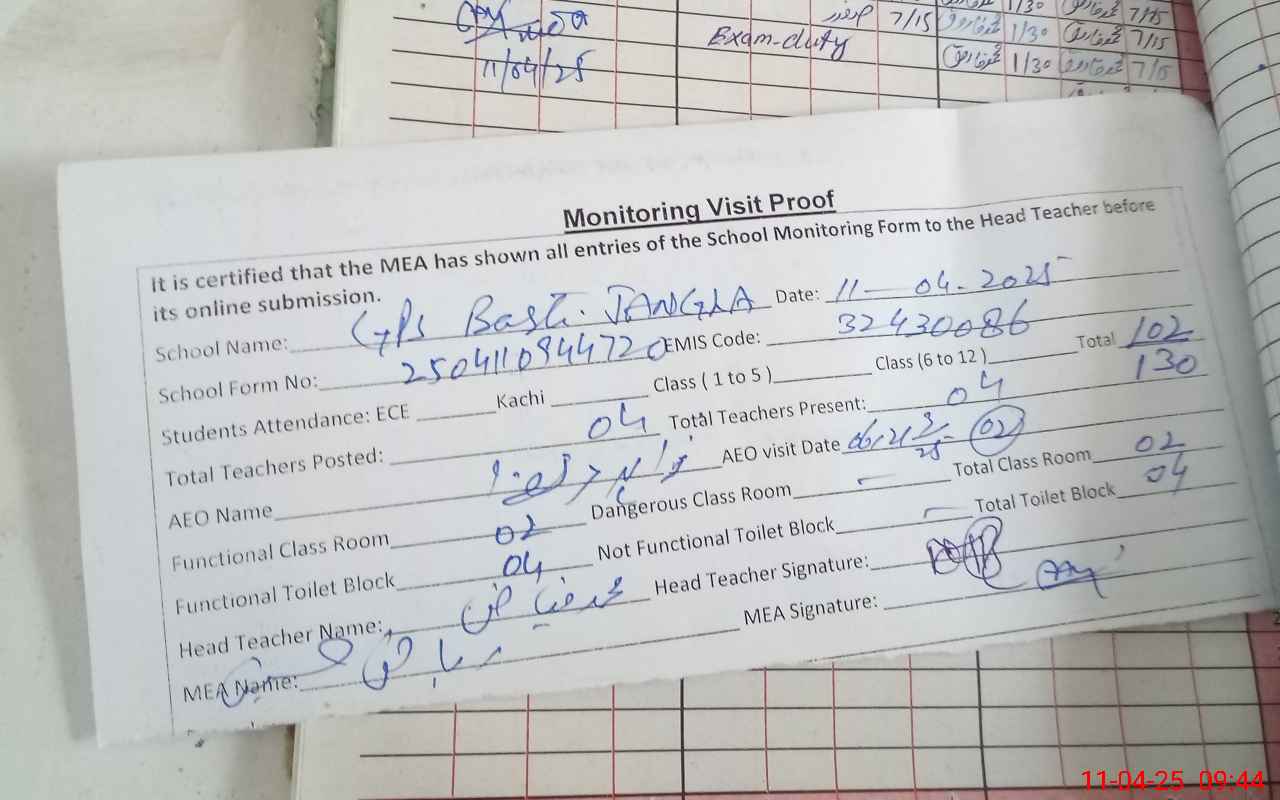 11/04/25
Exam-duty
7/15 1/30 7/15
1/30 7/15
1/30
Monitoring Visit Proof
It is certified that the MEA has shown all entries of the School Monitoring Form to the Head Teacher before
its online submission.
School Name: GPS Basti JANGLA Date: 11-04-2025
School Form No: 250411094472 EMIS Code: 32430086
Students Attendance: ECE Kachi Class ( 1 to 5 ) Class (6 to 12 ) Total 102
130
Total Teachers Posted: 04 Total Teachers Present: 04
AEO Name AEO visit Date 02
Functional Class Room 02 Dangerous Class Room - Total Class Room 02
Functional Toilet Block 04 Not Functional Toilet Block - Total Toilet Block 04
Head Teacher Name: محمد فیاض Head Teacher Signature:
MEA Name: MEA Signature:
11-04-25 09:44